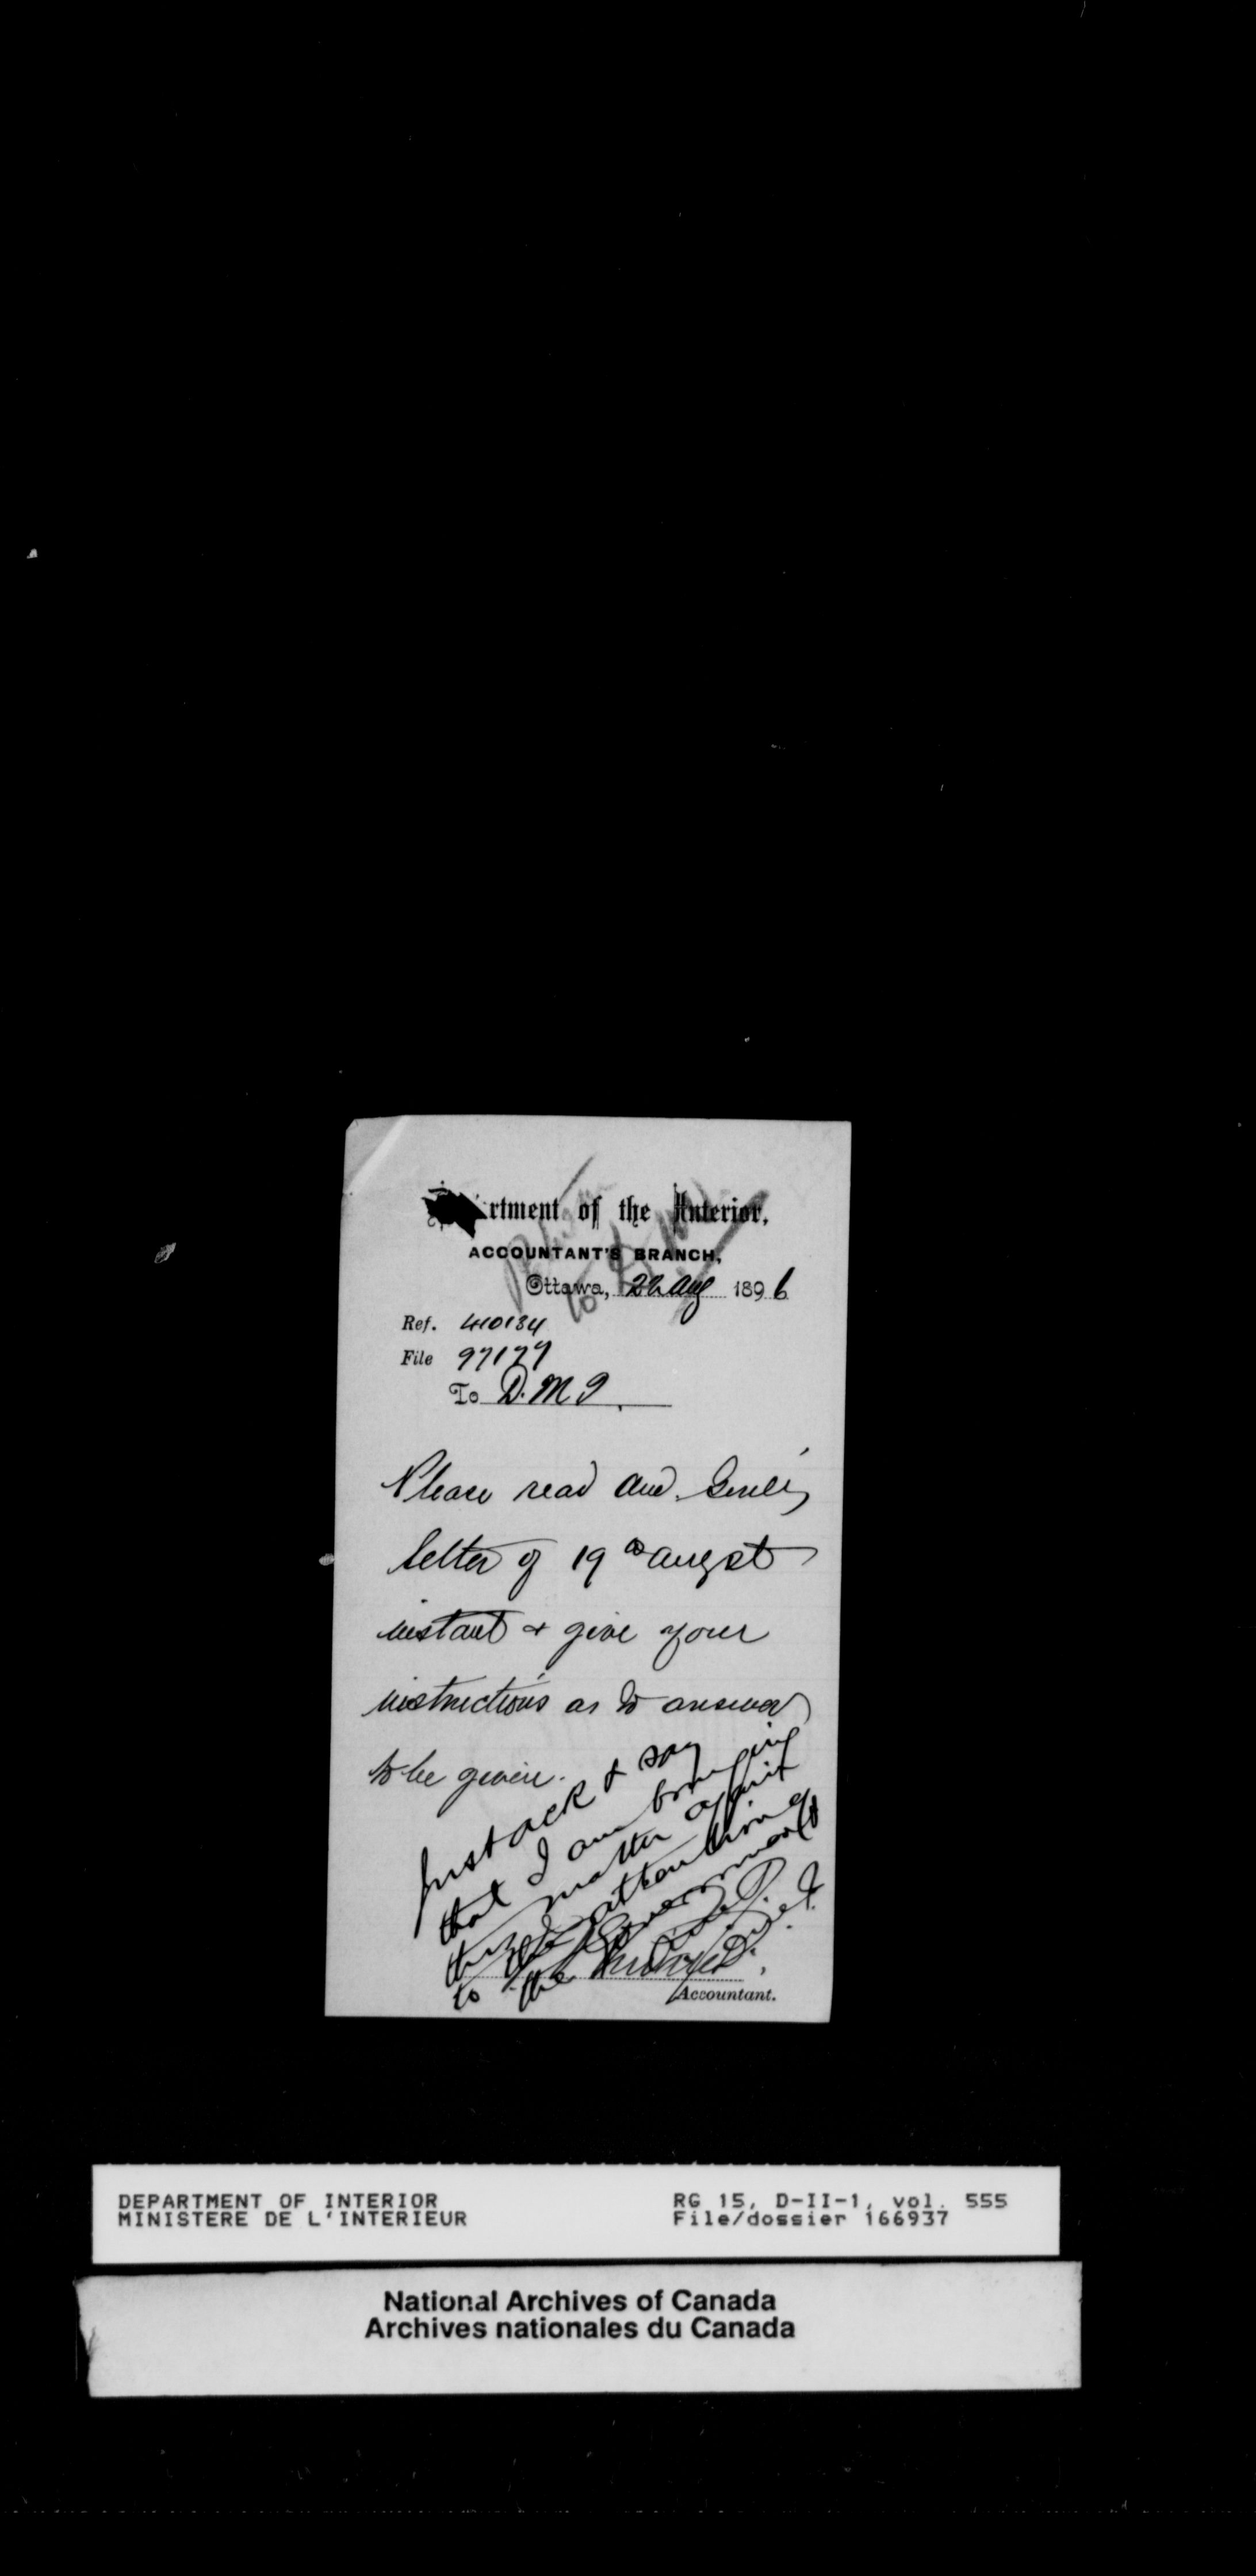 rtment of the Interior,
ACCOUNTANT'S BRANCH,
Ottawa, 22 Aug 1896
Ref. 410134
File 97177
To D. M I
Please read Aud. Genl's
letter of 19th augst
instant & give your
instructions as to answer
to be given.
Just ack & say
that I am bringing
this matter again
to the attention of
the Government
Accountant.
DEPARTMENT OF INTERIOR
MINISTERE DE L'INTERIEUR
RG 15, D-II-1, vol. 555
File/dossier 166937
National Archives of Canada
Archives nationales du Canada